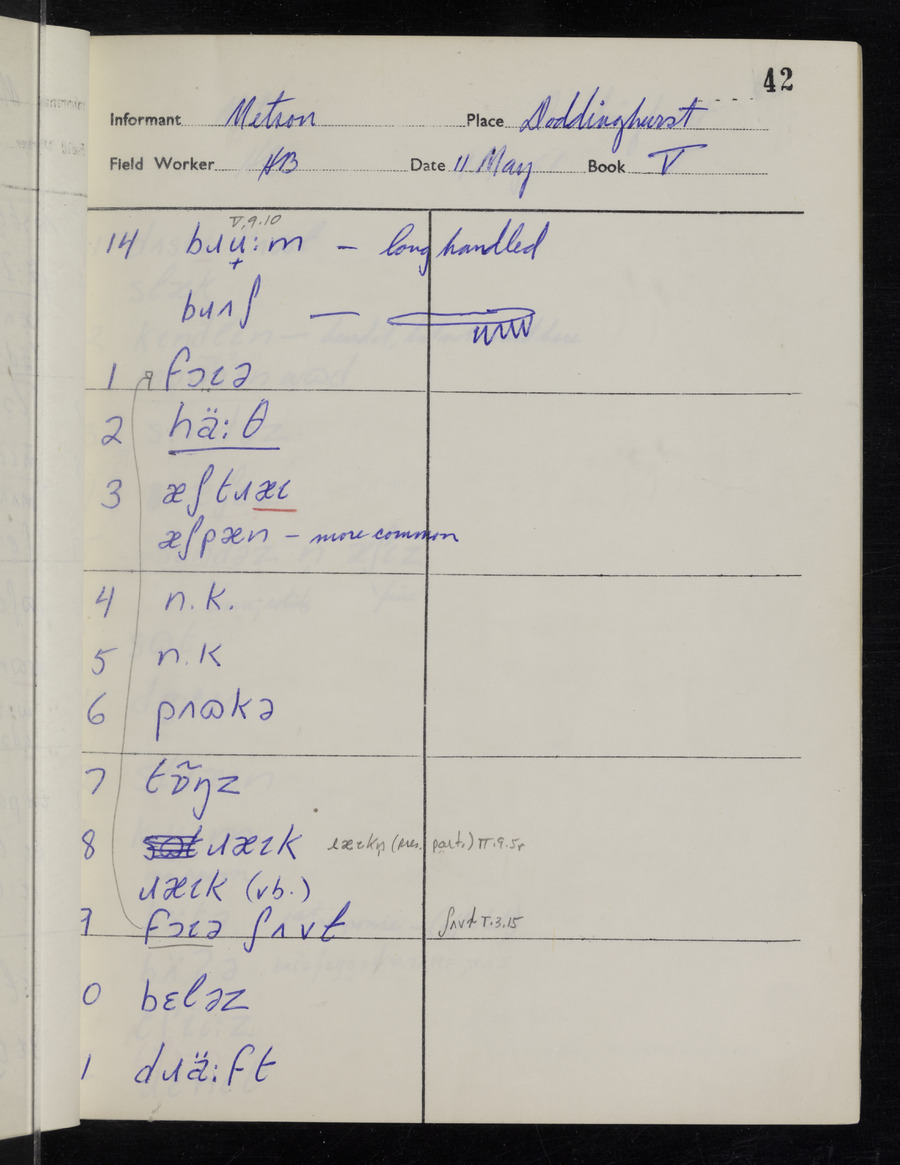 42
Informant Metson Place Doddinghurst
Field Worker HB Date 11 May Book V
V.9.10
14 bɹu̟:m – long handled
bɹʌʃ —
1 fɔɪə
2 hä:θ
3 æʃtɹæɪ
æʃpæn – more common
4 n.k.
5 n.k
6 pʌɷkə
7 tɒ̃ŋz
8 ɹæɪk
ɹæɪk (vb.)
9 fɔɪə ʃʌvt ʃʌvt I.3.15
0 bɛləz
1 dɹä:ft